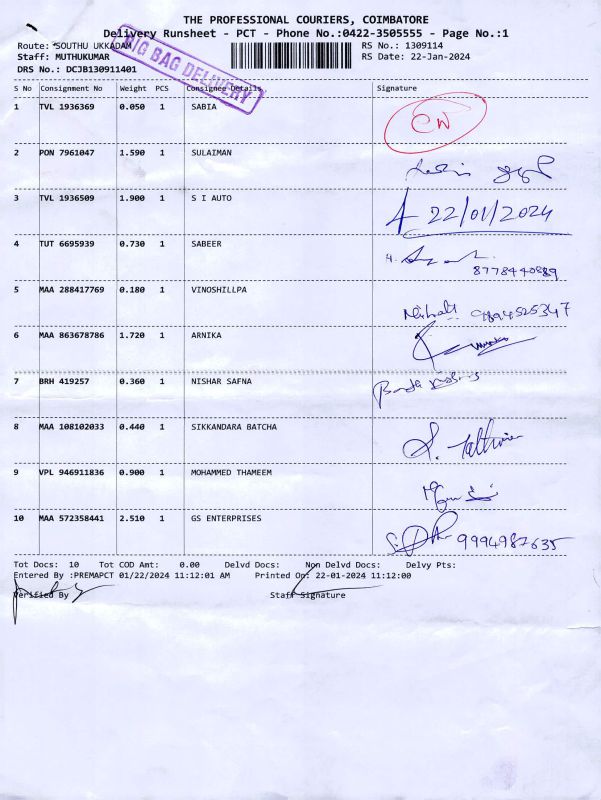 THE PROFESSIONAL COURIERS, COIMBATORE
Delivery Runsheet - PCT - Phone No.:0422-3505555 - Page No.:1
Route: SOUTHU UKKADAM RS No.: 1309114
Staff: MUTHUKUMAR RS Date: 22-Jan-2024
DRS No.: DCJB130911401
BIG BAG DELIVERY
S No Consignment No Weight PCS Consignee Details Signature
1 TVL 1936369 0.050 1 SABIA CW
2 PON 7961047 1.590 1 SULAIMAN
3 TVL 1936509 1.900 1 S I AUTO 22/01/2024
4 TUT 6695939 0.730 1 SABEER 4.
8778440889
5 MAA 288417769 0.180 1 VINOSHILLPA 9894525347
6 MAA 863678786 1.720 1 ARNIKA
7 BRH 419257 0.360 1 NISHAR SAFNA
8 MAA 108102033 0.440 1 SIKKANDARA BATCHA
9 VPL 946911836 0.900 1 MOHAMMED THAMEEM
10 MAA 572358441 2.510 1 GS ENTERPRISES 9994987635
Tot Docs: 10 Tot COD Amt: 0.00 Delvd Docs: Non Delvd Docs: Delvy Pts:
Entered By :PREMAPCT 01/22/2024 11:12:01 AM Printed On: 22-01-2024 11:12:00
Verified By Staff Signature